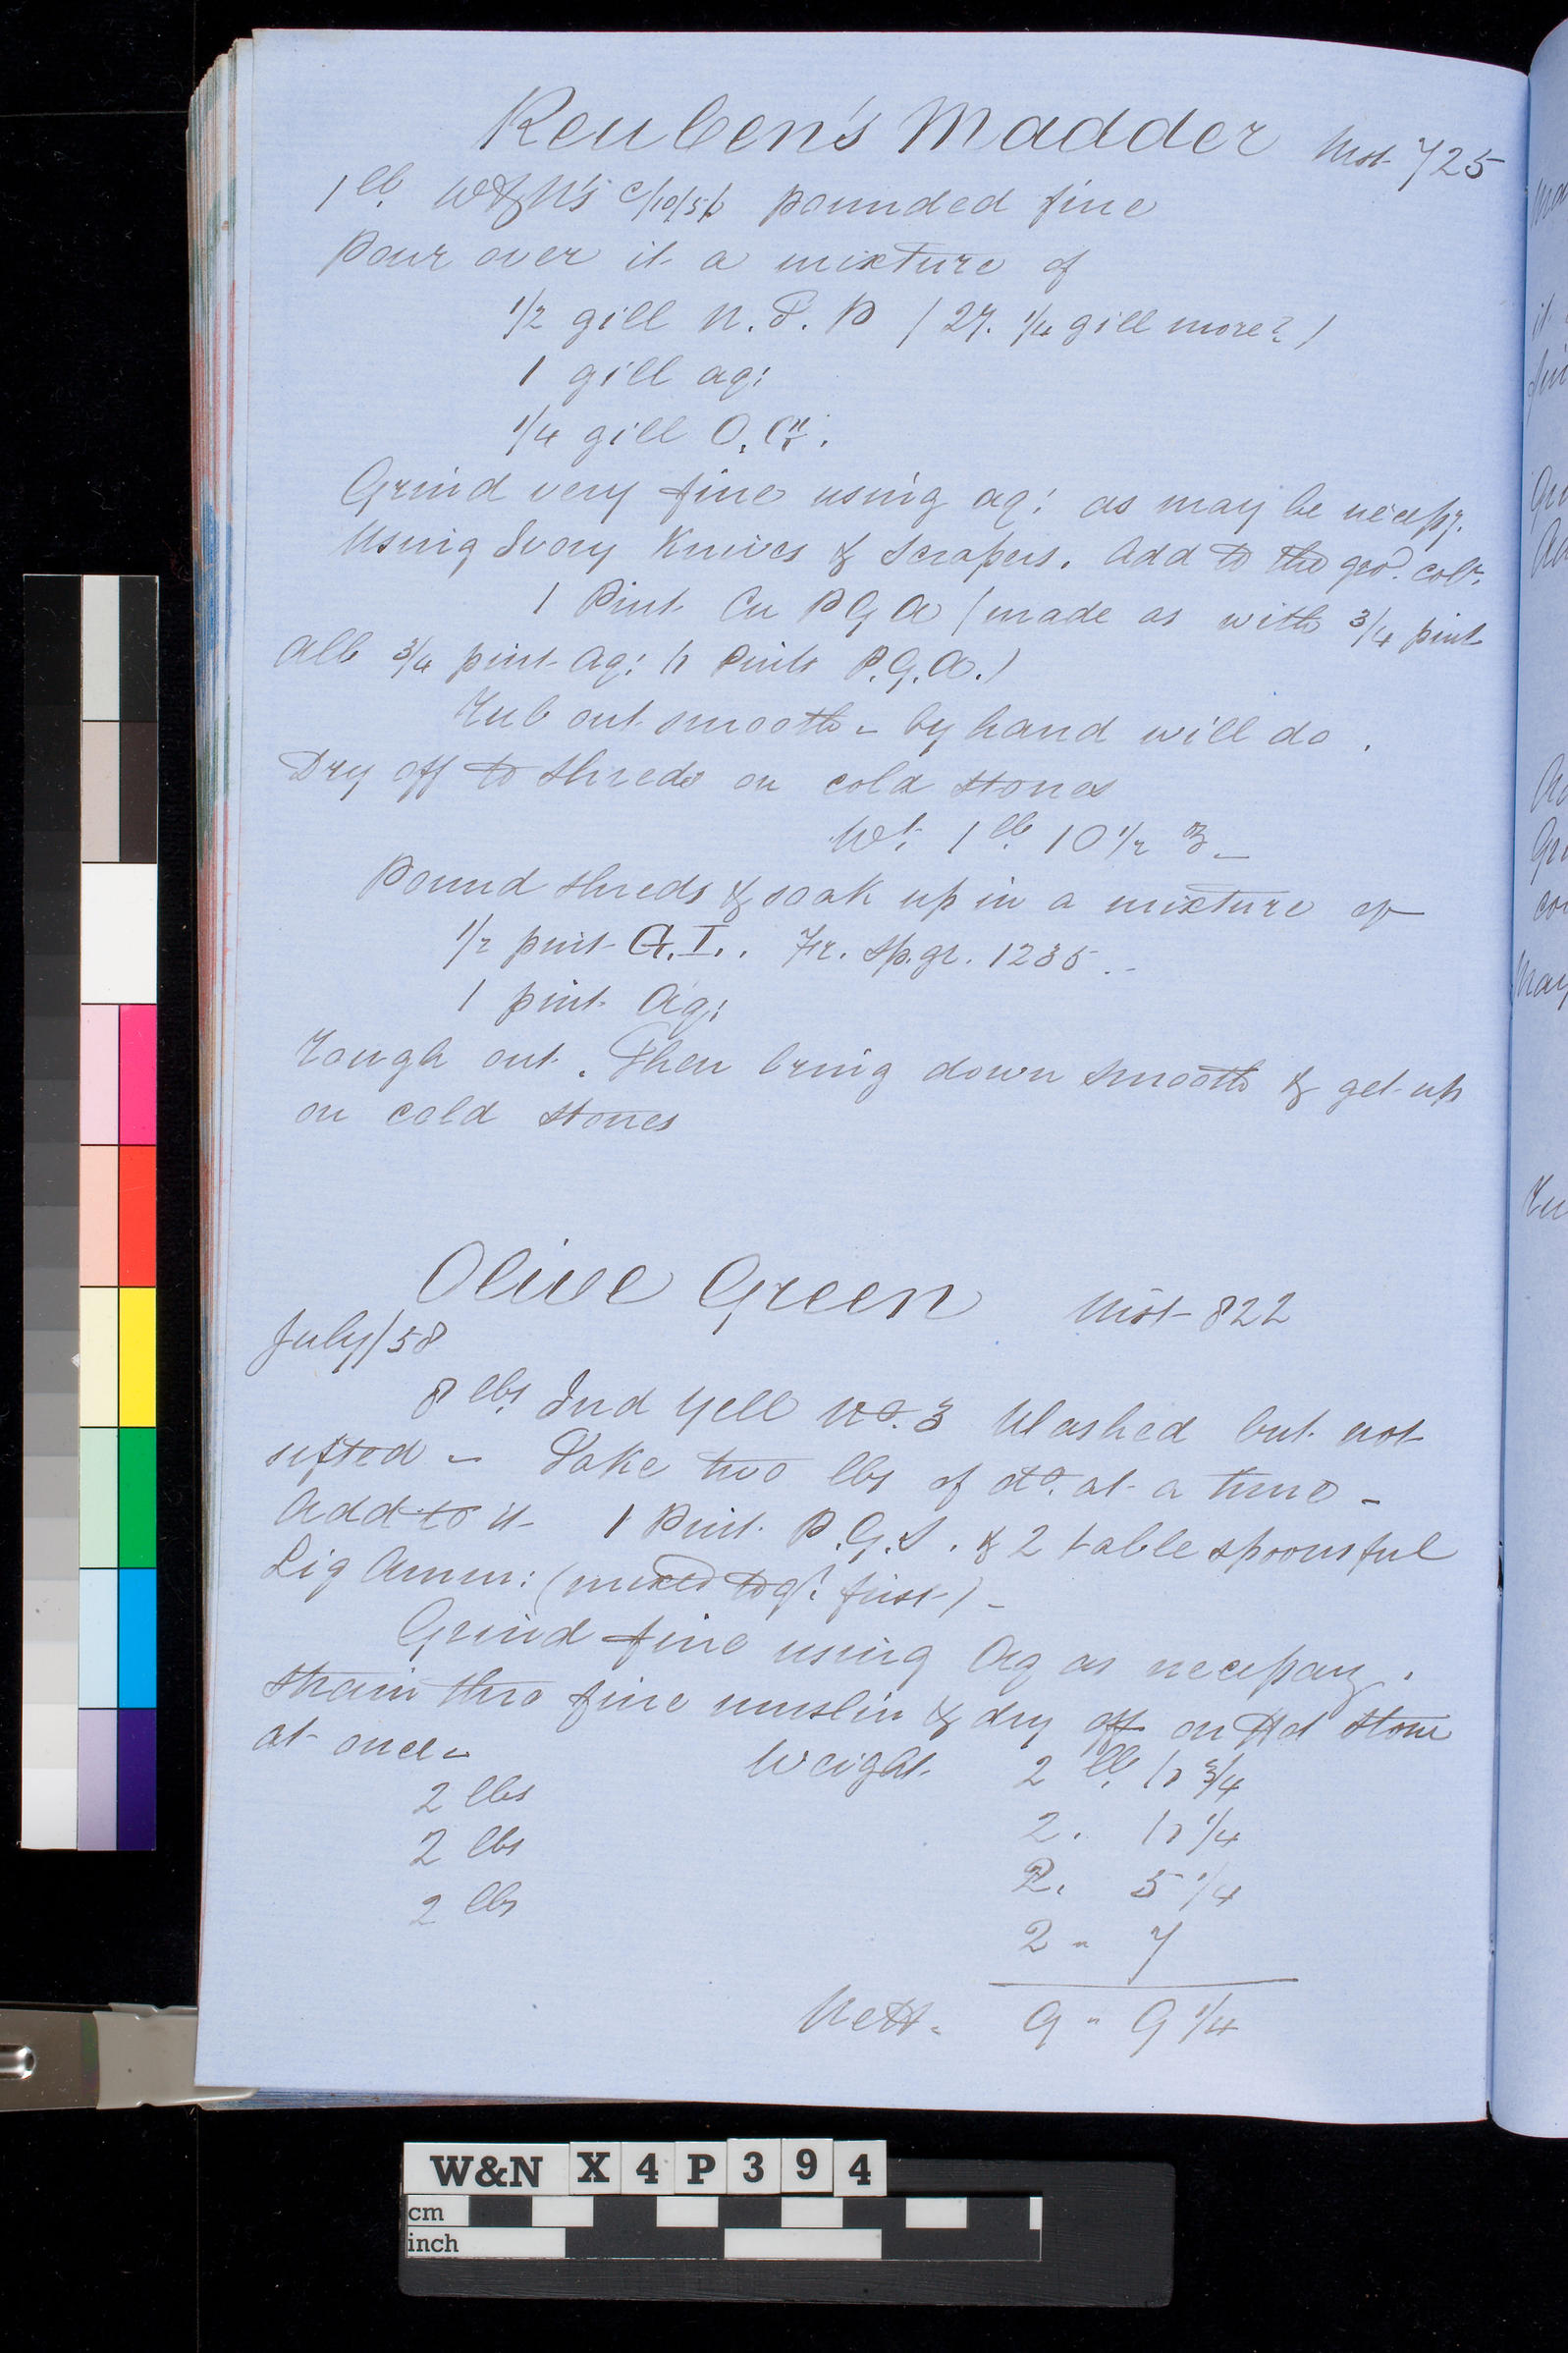 Reuben's Madder Mst 725
1 lb. W&N's c/10/56 pounded fine
Pour over it a mixture of
1/2 gill N.S.P (27. 1/4 gill more?)
1 gill aq:
1/4 gill O.
Grind very fine using aq: as may be necessy.
Using Ivory Knives & Scrapers. Add to the grd. colr.
1 Pint Cu P G A (made as with 3/4 pint
Alb 3/4 pint aq: Pints P.G.A.)
Rub out smooth - by hand will do.
Dry off to shreds on cold stones
Wt. 1 lb. 10 1/2 ℥ -
Pound shreds & soak up in a mixture of
1/2 pint G.I.. Fr. Sp.gr. 1235..
1 pint Aq:
Rough out. Then bring down smooth & get up
on cold stones
Olive Green Mst 822
July/58
8 lbs. Ind Yell No. 3 Washed but not
sifted - Take two lbs of do. at a time -
Add to it 1 Pint P.G.S. & 2 table spoonsful
Liq Amm: (mixed togr. first) -
Grind fine using Aq as necessary.
Strain thro fine muslin & dry off on Hd Stone
at once - Weight 2 lb. 10 3/4
2 lbs
2. 10 1/4
2 lbs
2. 5 1/4
2 lbs
2 " 7
Nett - 9 " 9 1/4
W&N X4P394
cm
inch